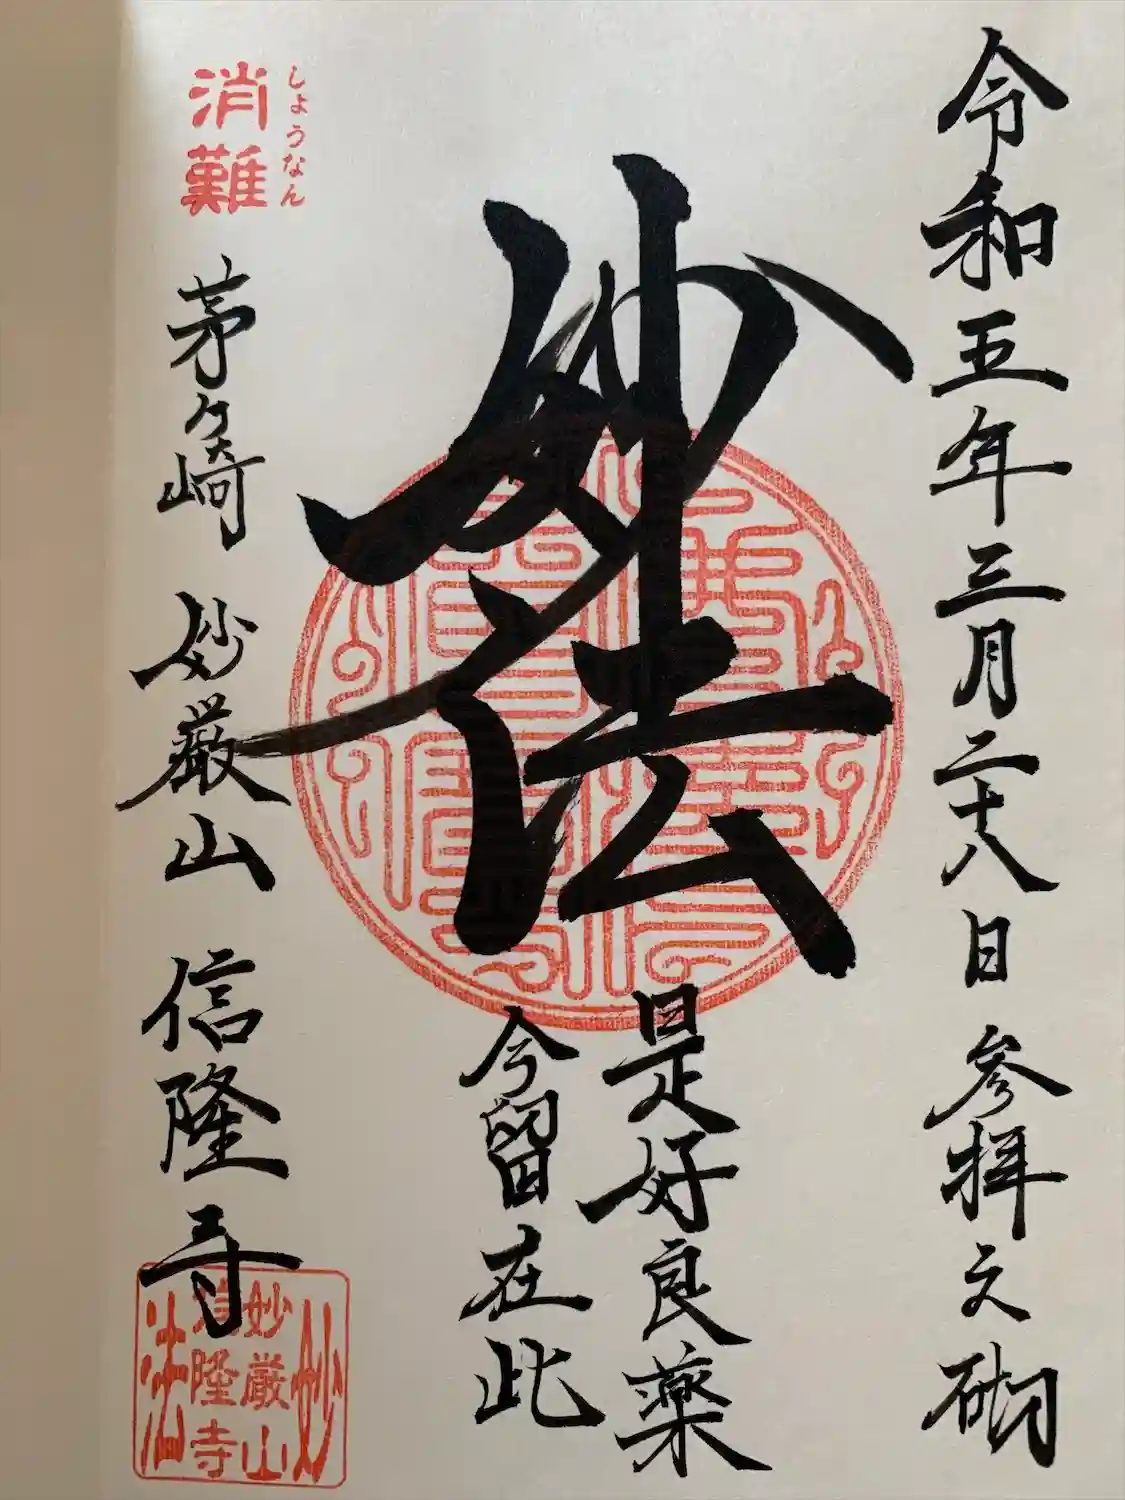 令和五年三月二十八日 参拝之砌
妙法
是好良薬
今留在此
しょうなん
消難
茅ヶ崎 妙厳山 信隆寺
妙法
妙厳山
信隆寺